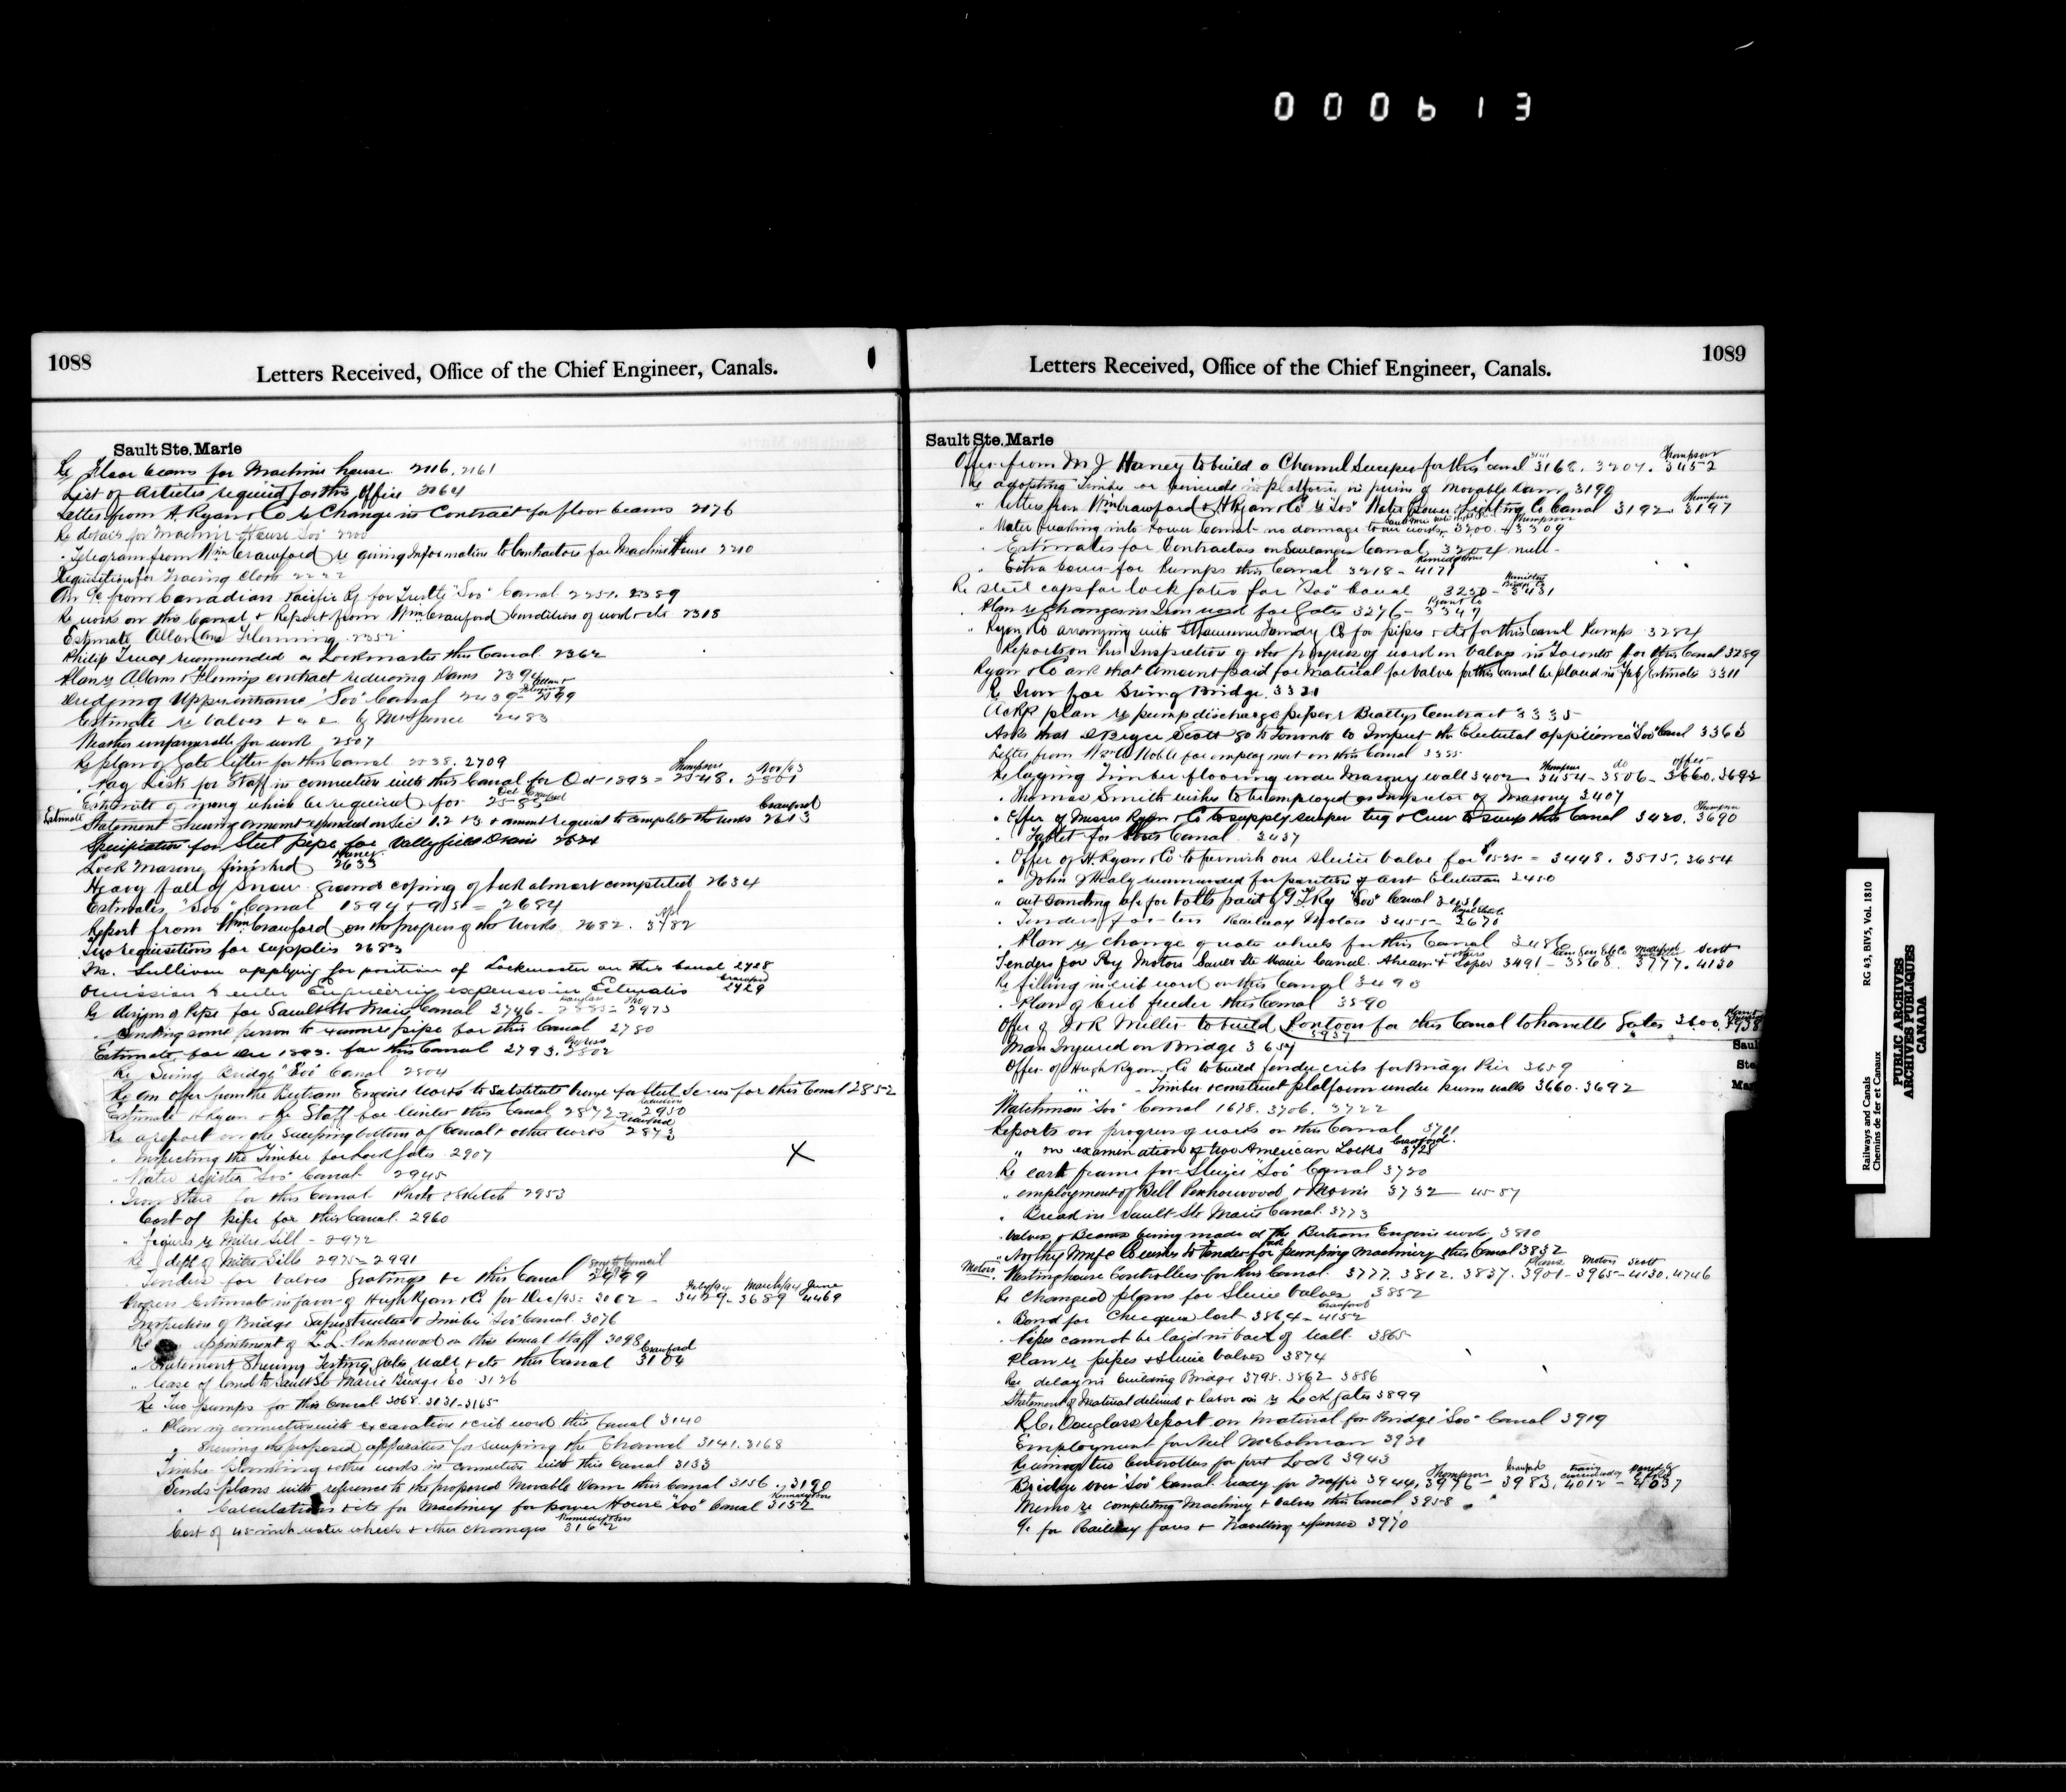 000613
1088
Letters Received, Office of the Chief Engineer, Canals.
Sault Ste. Marie
Re Floor beams for Machine house 2116, 2161
List of Articles required for this Office 2064
Letter from H. Ryan & Co re Change in Contract for floor beams 2176
Re details for Machine House "Soo" 2200
Telegram from Wm Crawford re giving Information to Contractors for Machine House 2210
Requisition for Tracing Cloth 2222
from Canadian Pacific Ry for Trestle "Soo" Canal 2251. 2389
Re works on this Canal & Report from Wm Crawford Condition of work etc 2318
Estimate Allan and Fleming 2352
Philip Truax recommended as Lockmaster this Canal 2362
Plan re Allan & Fleming contract reducing Dams 2394
Dredging Upper entrance "Soo" Canal 2439 - 2599
Estimate re Valves by McSpence 2483
Weather unfavorable for work 2507
Re plan of Gate lifter for this Canal 2538. 2709
Pay Lists for Staff in connection with this Canal for Oct 1893 = 2548. Thompson 2801 Nov/93
Estimate of money which be required for Oct 2585 Crawford
Estimate
Statement Shewing amount expended on Sec 1.2 & 3 & amount required to complete the works 2613 Crawford
Specification for Steel pipe for Valleyfield Drain 2524
Lock Masonry finished 2633 Haney
Heavy fall of Snow ground coping of lock almost completed 2634
Estimates "Soo" Canal 1894 & 95 = 2684
Report from Wm Crawford on the progress of the Works 2682. 3782
Two requisitions for supplies 2683
M. Sullivan applying for position of Lockmaster on this Canal 2728
Omission to enter Engineering expenses in Estimates 2729 Crawford
Re design of Pipe for Sault Ste Marie Canal 2746 - 2885 - 2973
Sending some person to examine pipe for this Canal 2780
Estimate for Dec 1893. for this Canal 2793. 2802
Re Swing Bridge "Soo" Canal 2804
Re an offer from the Bertram Engine Works to Substitute for Steel for this Canal 2852
Estimate H Ryan & Co Staff for Winter this Canal 2872 - 2950
Re a report on the Sweeping bottom of Canal & other works 2873 Crawford
" Inspecting the Timber for Lock Gates 2907
X
" Water register "Soo" Canal 2945
Iron Stairs for this Canal Photo & Sketch 2953
Cost of pipe for this Canal. 2960
" figures re Mitre Sill - 2972
Re dept of Mitre Sills 2975 - 2991
Tenders for Valves Gratings &c this Canal 2999
Progress Estimate in favor of Hugh Ryan & Co for Dec/93 = 3002 - Feby/94 3429 - March/94 3689 June 4469
Inspection of Bridge Superstructure & Timber "Soo" Canal. 3076
Re appointment of L. L. Penharwood on this Canal Staff 3098
Statement Shewing Testing Gates Wall & etc this Canal 3104 Crawford
" lease of land to Sault Ste Marie Bridge Co 3126
Re Two pumps for this Canal 3068. 3131 - 3165
" Plan in connection with excavation & crib work this Canal 3140
" Shewing the proposed apparatus for sweeping the Channel 3141. 3168
Timber Plumbing & other works in connection with this Canal 3133
Sends plans with reference to the proposed Movable Dam this Canal 3156 .. 3190
" Calculations & etc for Machinery for power House "Soo" Canal 3152
Cost of 45 inch water wheels & other changes 3162
1089
Letters Received, Office of the Chief Engineer, Canals.
Sault Ste. Marie
Offer from M J Haney to build a Channel Sweeper for this Canal 3168. 3204. 3452 Thompson
Re adopting Timber or in platform in of Movable Dam 3190
" letters from Wm Crawford & H Ryan & Co re "Soo" Water Power & Lighting Co Canal 3192 - 3197
" Water breaking into Lower Canal no damage to our works 3200 - 3309
Estimates for Contractors on Soulanges Canal 3204 null
Extra Cover for Pumps this Canal 3218 - 4171
Re steel caps for lock gates for "Soo" Canal 3230 - 3431
Plan re Changes in Iron work for Gates 3276 - 3347
Ryan & Co arranging with Co for pipes & etc for this Canal Pumps 3284
Reports on his Inspection of the progress of work on Valves in Toronto for this Canal 3289
Ryan & Co ask that Amount paid for Material for Valves for this Canal be placed in Feby Estimates 3311
Re Iron for Swing Bridge 3321
Ackg plan re pump discharge pipes & Beattys Contract 3335
Asks that D Bryce Scott go to Toronto to Inspect the Electrical appliances "Soo" Canal 3363
Letter from Noble for employment on this Canal 3355
Re laying Timber flooring under Masonry wall 3402 - Thompson 3454 - do 3506 - offer 3660. 3692
Thomas Smith wishes to be employed as Inspector of Masonry 3407
Offer of Messrs Ryan & Co to supply sweeper tug & Crew to sweep this Canal 3420. 3690 Thompson
Tablet for this Canal 3437
Offer of H. Ryan & Co to furnish one Sluice Valve for $1525 = 3448. 3515. 3654
" John J Healy recommended for position of asst Electrician 3450
" outstanding a/c for tolls paid by G T Ry "Soo" Canal 3451
Tenders for ten Railway Motors 3455 - 3670
Plan re change of water wheels for this Canal 3486
Tenders for Ry Motors Sault Ste Marie Canal. Ahearn & Soper 3491 - 3568. 3777. Scott 4130
Re filling in crib work on this Canal 3493
Plan of Crib feeder this Canal 3590
Offer of J & R Miller to build Pontoon for this Canal to handle Gates 3600. 3938
3937
Man Injured on Bridge 3654
Offer of Hugh Ryan & Co to build fender cribs for Bridge Pier 3659
" " Timber & construct platform under wing walls 3660. 3692
Watchman "Soo" Canal 1678. 3706. 3722
Reports on progress of works on this Canal 3711
" on examination of two American Locks 3728 Crawford
Re cast frame for Sluice "Soo" Canal 3720
" employment of Bell Penharwood & Morris 3732 - 4557
" Break in Sault Ste Marie Canal 3773
Valves & Beams being made at the Bertram Engine works 3810
Northey Mnfg Co wishes to tender for pumping machinery this Canal 3832
Motors
Westinghouse Controllers for this Canal. 3777. 3812. 3837. Plans 3901 - Motors 3965 - Scott 4130. 4746
Re Changed plans for Sluice Valves 3852
Bond for Cheques lost 3864 - 4152 Crawford
Pipes cannot be laid in back of Wall. 3865
Plan re pipes & Sluice Valves 3874
Re delay in building Bridge 3795. 3862 3886
Statement of Material delivered & labor on re Lock gates 3899
R.C. Douglas report on Material for Bridge "Soo" Canal 3919
Employment for Neil McColman 3931
Re using two Controllers for first Lock 3943
Bridge over "Soo" Canal ready for traffic 3944, Thompson 3976 - Crawford 3983. 4012 - 4037
Memo re completing Machinery & Valves this Canal 3958
for Railway fares & Travelling expenses 3970
Sau
Ste
Ma
RG 43, BIV5, Vol. 1810
Railways and Canals
Chemins de fer et Canaux
PUBLIC ARCHIVES
ARCHIVES PUBLIQUES
CANADA